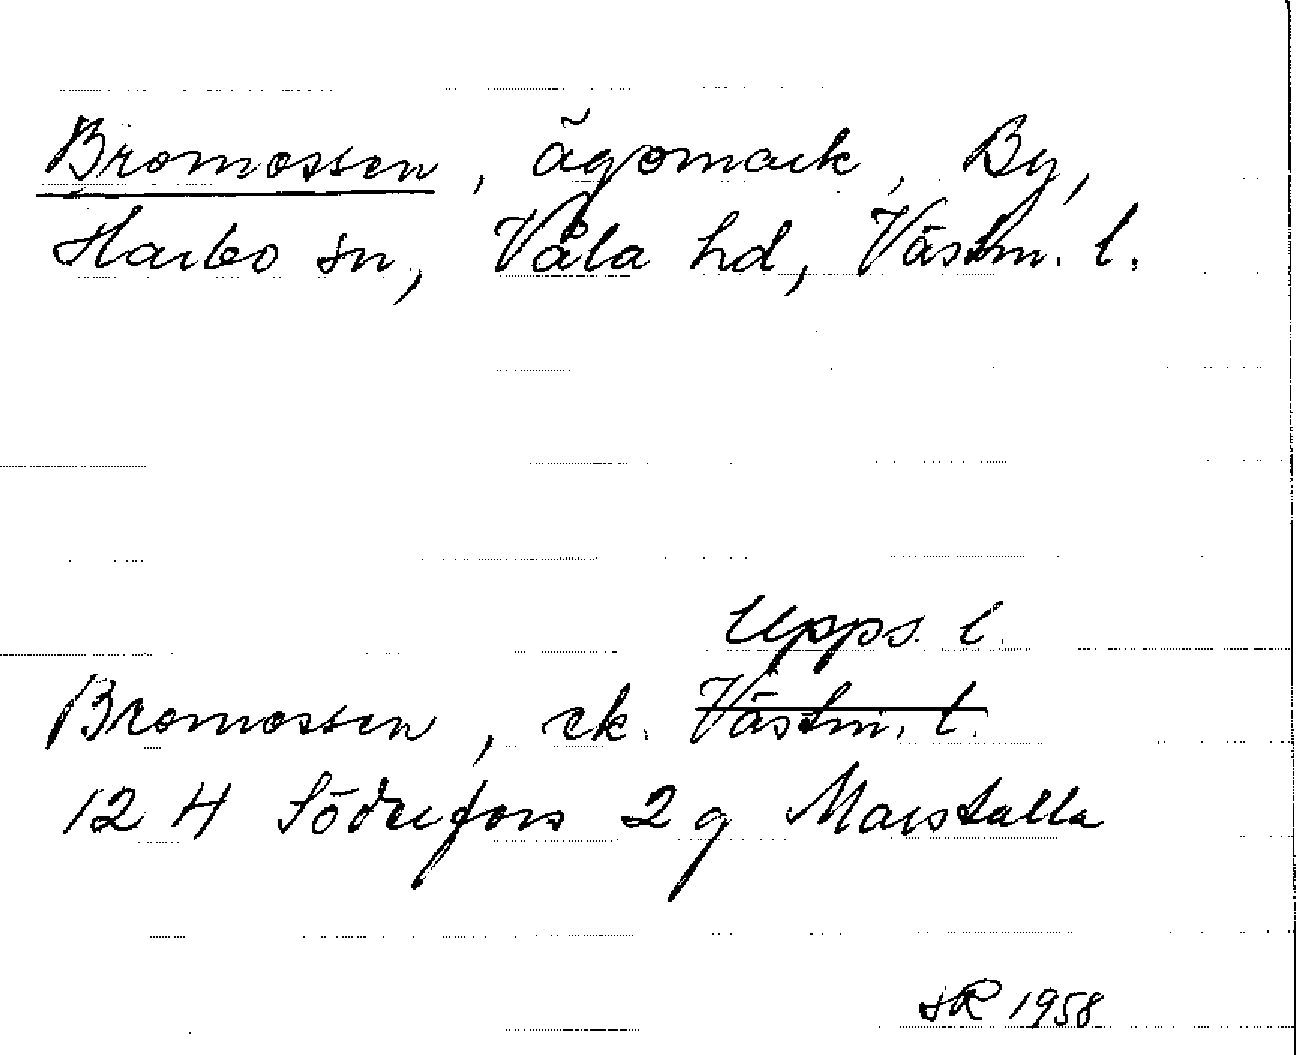 Bromossen, ägomark, By,
Harbo sn, Våla hd, Västm. l.
Upps. l.
Bromossen, ek. Västm. l.
12 H Söderfors 2 g Marstalla
SR 1958